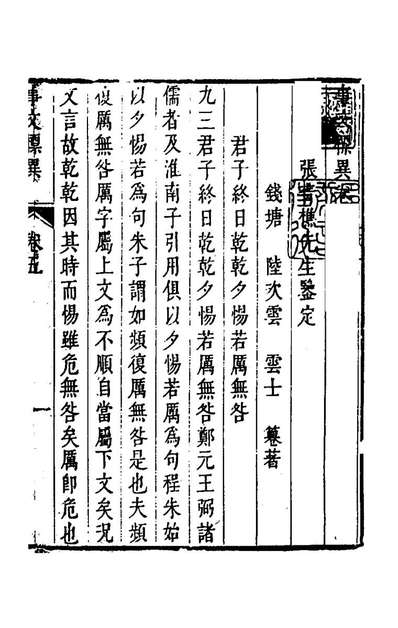 事文標異卷
張菊樵先生鑒定
錢塘 陸次雲 雲士 纂著
君子終日乾乾夕惕若厲無咎
九三君子終日乾乾夕惕若厲無咎鄭元王弼諸
儒者及淮南子引用俱以夕惕若厲為句程朱始
以夕惕若為句朱子謂如頻復厲無咎是也夫頻
復厲無咎厲字屬上文為不順自當屬下文矣況
文言故乾乾因其時而惕雖危無咎矣厲即危也
卷五
一